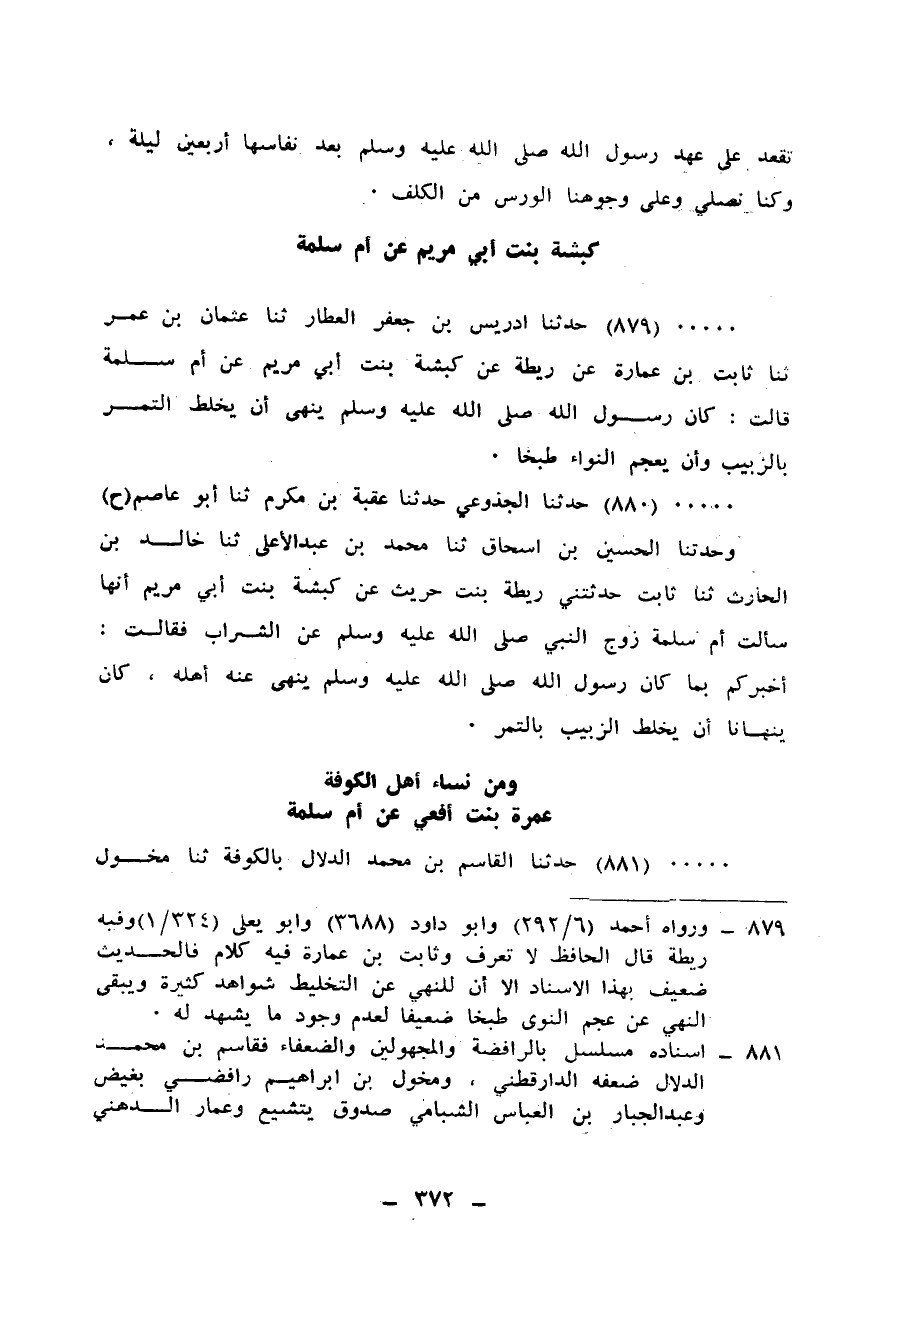 تقعد على عهد رسول الله صلى الله عليه وسلم بعد نفاسها أربعين ليلة ،
وكنا نصلي وعلى وجوهنا الورس من الكلف ٠
كبشة بنت أبي مريم عن أم سلمة
٠٠٠٠٠ (٨٧٩) حدثنا ادريس بن جعفر العطار ثنا عثمان بن عمر
ثنا ثابت بن عمارة عن ريطة عن كبشة بنت أبي مريم عن أم سلمة
قالت : كان رسول الله صلى الله عليه وسلم ينهى أن يخلط التمر
بالزبيب وأن يعجم النواء طبخا ٠
٠٠٠٠٠ (٨٨٠) حدثنا الجذوعي حدثنا عقبة بن مكرم ثنا أبو عاصم(ح)
وحدثنا الحسين بن اسحاق ثنا محمد بن عبدالأعلى ثنا خالد بن
الحارث ثنا ثابت حدثتني ريطة بنت حريث عن كبشة بنت أبي مريم أنها
سألت أم سلمة زوج النبي صلى الله عليه وسلم عن الشراب فقالت :
أخبركم بما كان رسول الله صلى الله عليه وسلم ينهى عنه أهله ، كان
ينهانا أن يخلط الزبيب بالتمر ٠
ومن نساء أهل الكوفة
عمرة بنت أفعي عن أم سلمة
٠٠٠٠٠ (٨٨١) حدثنا القاسم بن محمد الدلال بالكوفة ثنا مخول
٨٧٩ ـ ورواه أحمد (٢٩٢/٦) وابو داود (٣٦٨٨) وابو يعلى (١/٣٢٤)وفيه
ريطة قال الحافظ لا تعرف وثابت بن عمارة فيه كلام فالحديث
ضعيف بهذا الاسناد الا أن للنهي عن التخليط شواهد كثيرة ويبقى
النهي عن عجم النوى طبخا ضعيفا لعدم وجود ما يشهد له ٠
٨٨١ ـ اسناده مسلسل بالرافضة والمجهولين والضعفاء فقاسم بن محمد
الدلال ضعفه الدارقطني ، ومخول بن ابراهيم رافضي بغيض
وعبدالجبار بن العباس الشبامي صدوق يتشيع وعمار الدهني
ـ ٣٧٢ ـ